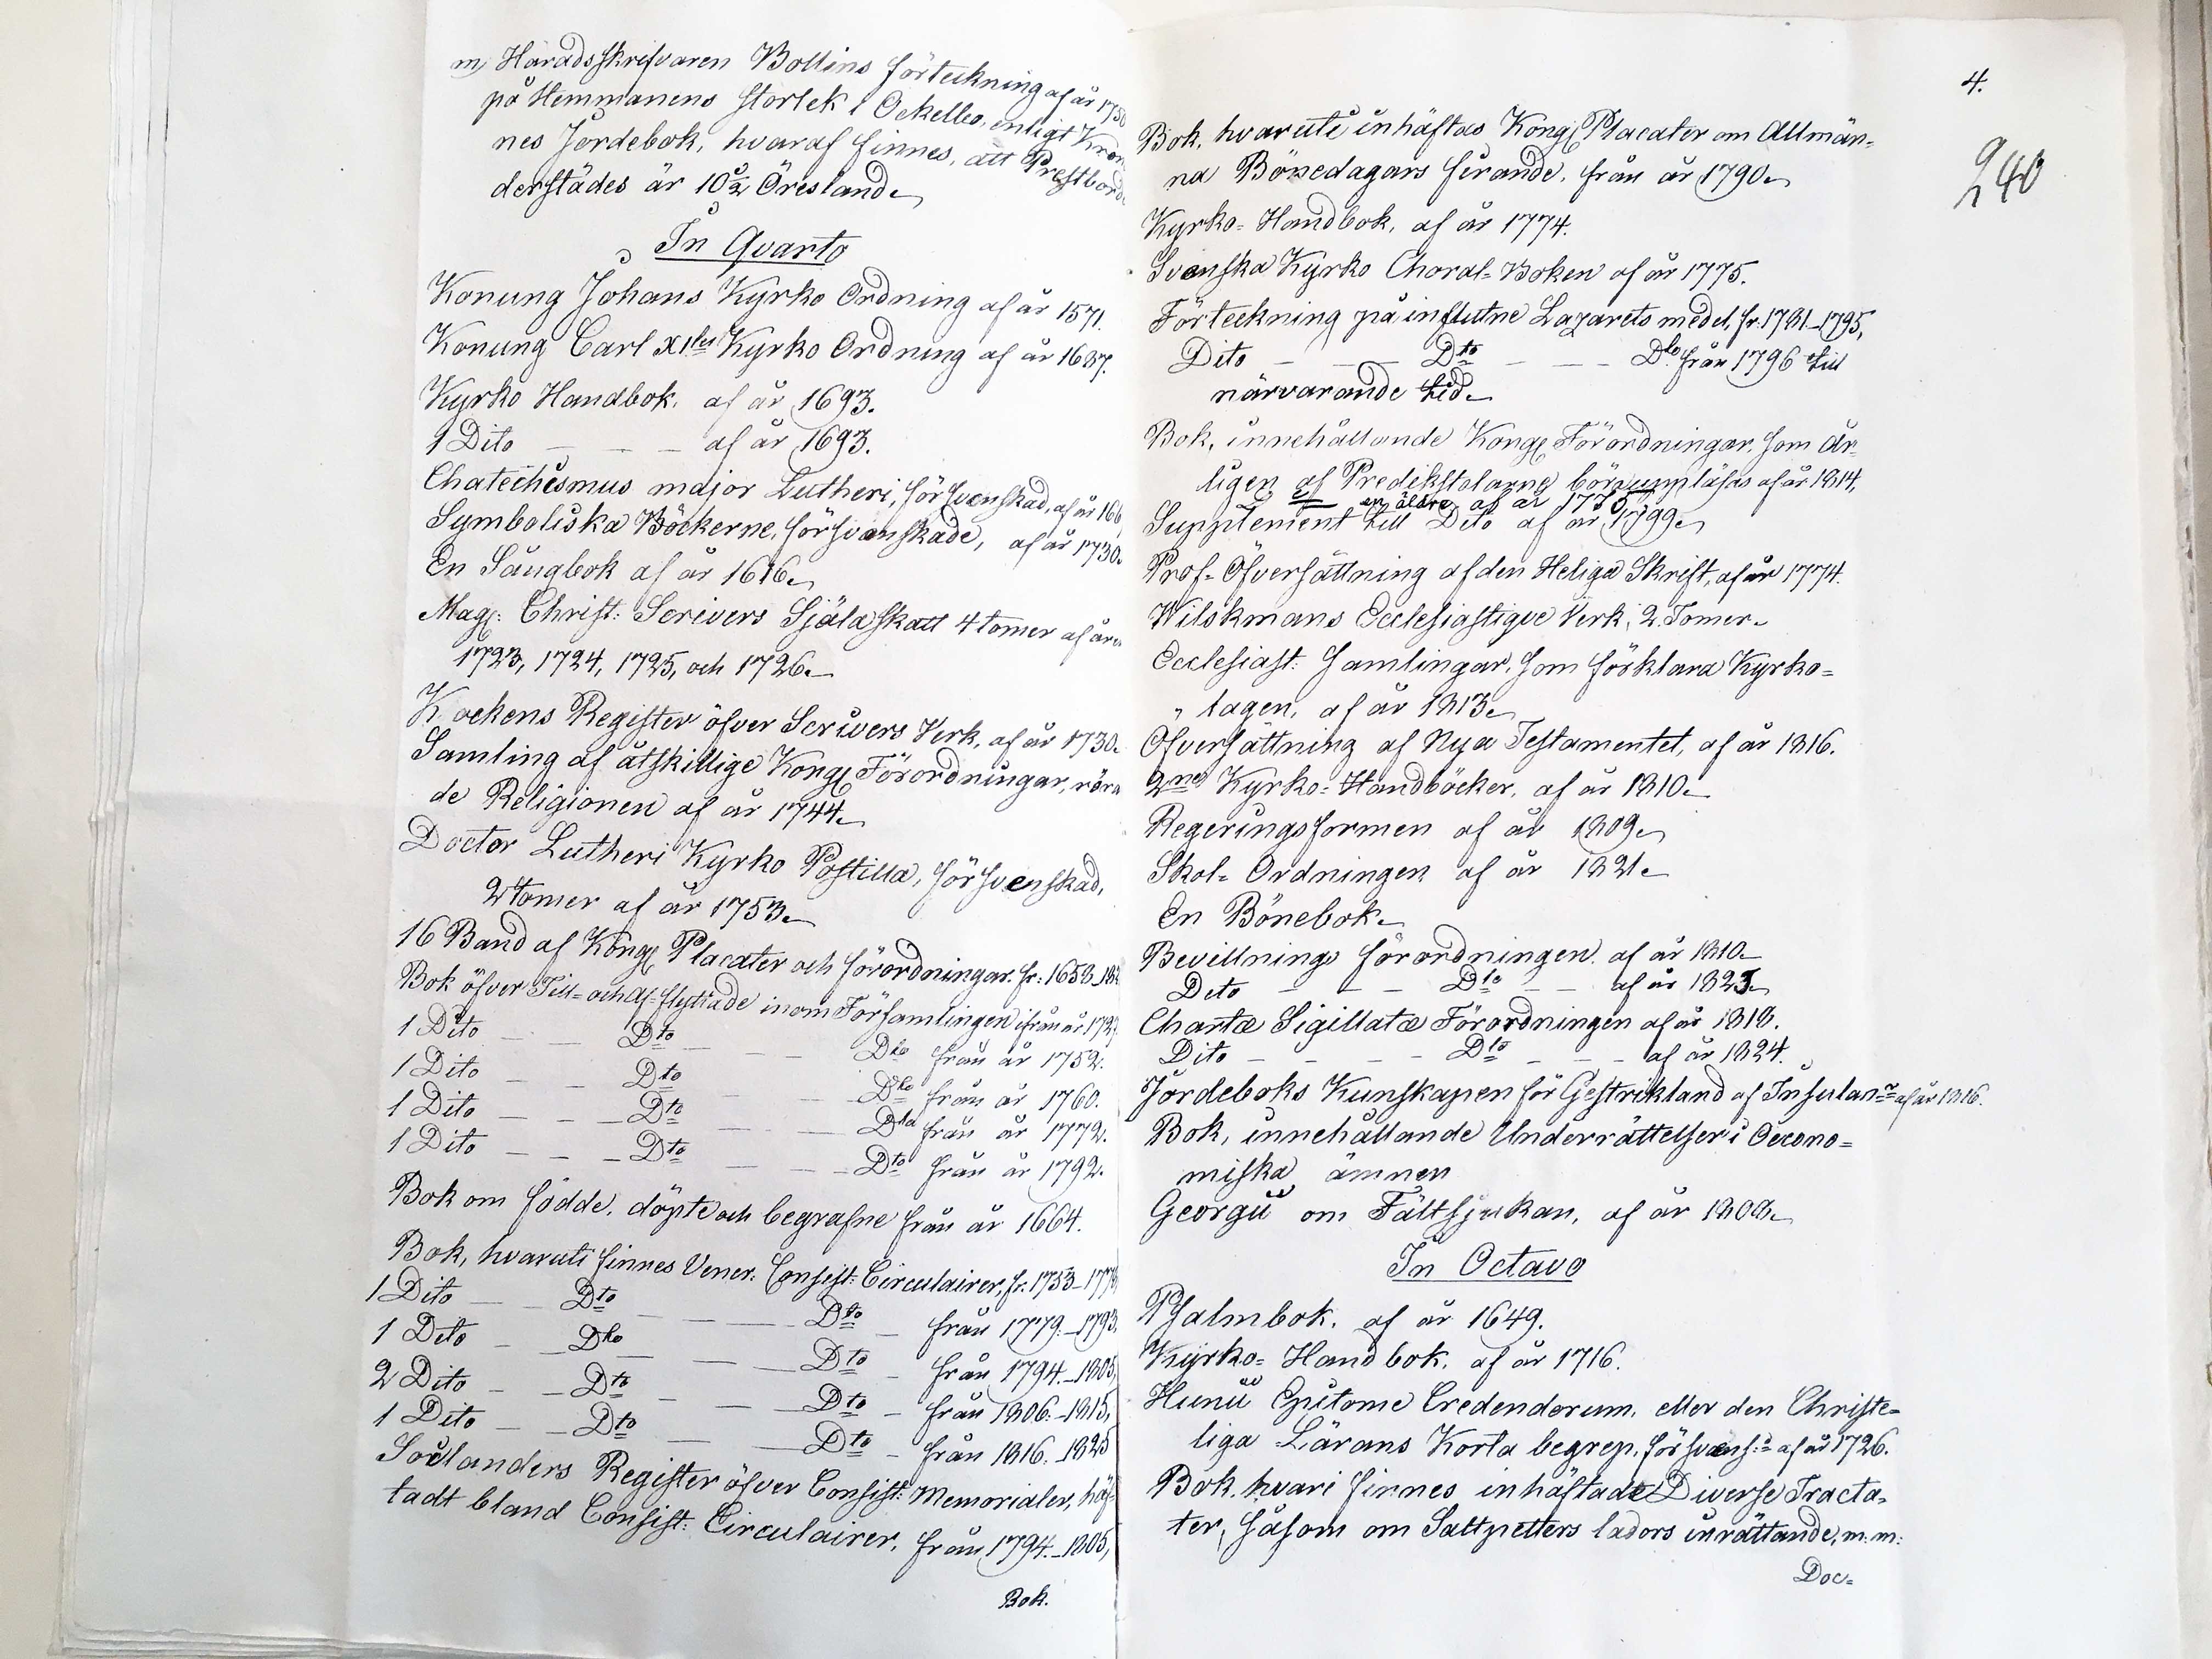 m, Häradsskrifvaren Bollins förteckning af år 1750
på Hemmanens storlek i Ockelbo, enligt Kro
nes Jordebok, hvaraf finnes, att Prestbord
derstädes är 10 5/2 Öresland.
In Qvarto
Konung Johans Kyrko Ordning af år 1571.
Konung Carl XItes Kyrko Ordning af år 1687.
Kyrko Handbok. af år 1693.
1 Dito — — — af år 1693.
Chatechismus major Lutheri, försvenskad, af år 166
Symboliska Böckerne, försvenskade, af år 1730.
En Sångbok af år 1616.
Mag: Christ: Scrivers Själaskatt 4 tomer af åren
1723, 1724, 1725, och 1726.
Kockens Register öfver Scrivers Verk, af år 1730.
Samling af åtskillige Kongl Förordningar, röra
de Religionen af år 1744.
Doctor Lutheri Kyrko Postilla, försvenskad,
2 tomer af år 1753.
16 Band af Kongl Placater och förordningar. fr: 1653–182
Bok öfver Till- och Af-flyttade inom Församlingen ifrån år 1737.
1 Dito — — Dto — — — Dto från år 1752.
1 Dito — — Dto — — — Dto från år 1760.
1 Dito — — Dto — — — Dto från år 1772.
1 Dito — — — Dto — — — Dto från år 1792.
Bok om födde, döpte och begrafne från år 1664.
Bok, hvaruti finnes Vener. Consist: Circulairer, fr. 1753–177
1 Dito — Dto — — — Dto — från 1779.–1793.
1 Dito — Dto — — — Dto — från 1794.–1805,
2 Dito — — Dto — — Dto — från 1806.–1815,
1 Dito — — Dto — — Dto — från 1816.–1825
Soelanders Register öfver Consist: Memorialer, häf-
tadt bland Consist: Circulairer, från 1794.–1805,
Bok.
4.
240
Bok, hvaruti inhäftas Kongl Placater om Allmän-
na Bönedagars firande, från år 1790.
Kyrko-Handbok, af år 1774.
Svenska Kyrko Choral-Boken af år 1775.
Förteckning på influtne Lazarets medel, fr. 1781–1795,
Dito — — — Dto — — — Dto från 1796 till
närvarande tid.
Bok, innehållande Kongl Förordningar, som år-
ligen af Predikstolarne böra uppläsas af år 1814,
en äldre af år 1775
Supplement till Dito af år 1799.
Prof-Öfversättning af den Heliga Skrift, af år 1774.
Wilskmans Ecclesiastiqve Verk, 2. Tomer.
Ecclesiast: Samlingar, som förklara Kyrko-
" lagen, af år 1813.
Öfversättning af Nya Testamentet, af år 1816.
2ne Kyrko-Handböcker, af år 1810.
Regeringsformen af år 1809.
Skol-Ordningen af år 1821.
En Bönebok.
Bevillnings förordningen. af år 1810.
Dito — — — Dto — — af år 1823.
Chartæ Sigillatæ Förordningen af år 1818.
Dito — — — — Dto — — — af år 1824.
Jordeboks Kunskapen för Gestrikland af Insulan:r af år 1816.
Bok, innehållande Underrättelser i Oecono-
miska ämnen
Georgii om Fältsjukan, af år 1808.
In Octavo
Psalmbok. af år 1649.
Kyrko-Handbok, af år 1716.
Hunii Epitome Credendorum, eller den Christe-
liga Lärans Korta begrep, försvens:d af år 1726.
Bok, hvari finnes inhäftade Diverse Tracta-
ter, såsom om Saltpetters lador s inrättande, m: m:
Doc-